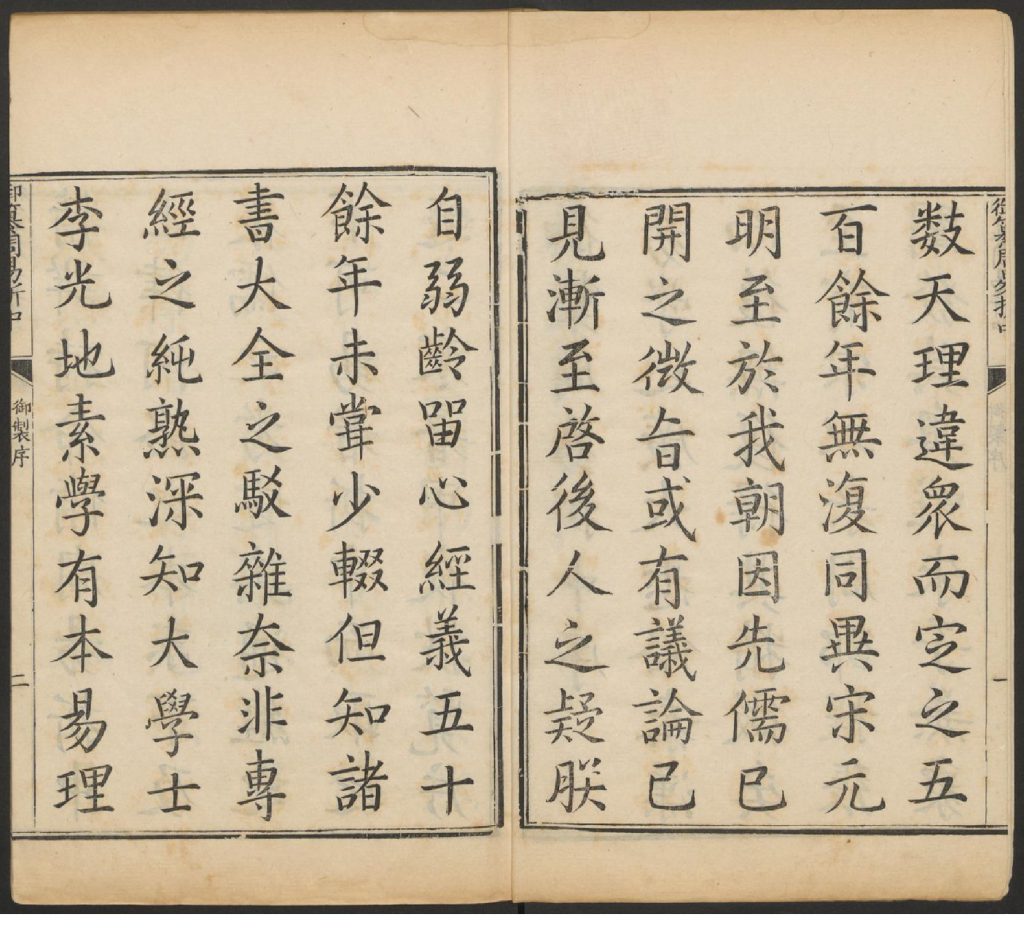 御纂周易折中
一
數天理違眾而定之五
百餘年無復同異宋元
明至於我朝因先儒已
開之微旨或有議論已
見漸至啓後人之疑朕
自弱齡留心經義五十
餘年未嘗少輟但知諸
書大全之駁雜奈非專
經之純熟深知大學士
李光地素學有本易理
御纂周易折中
御製序
二